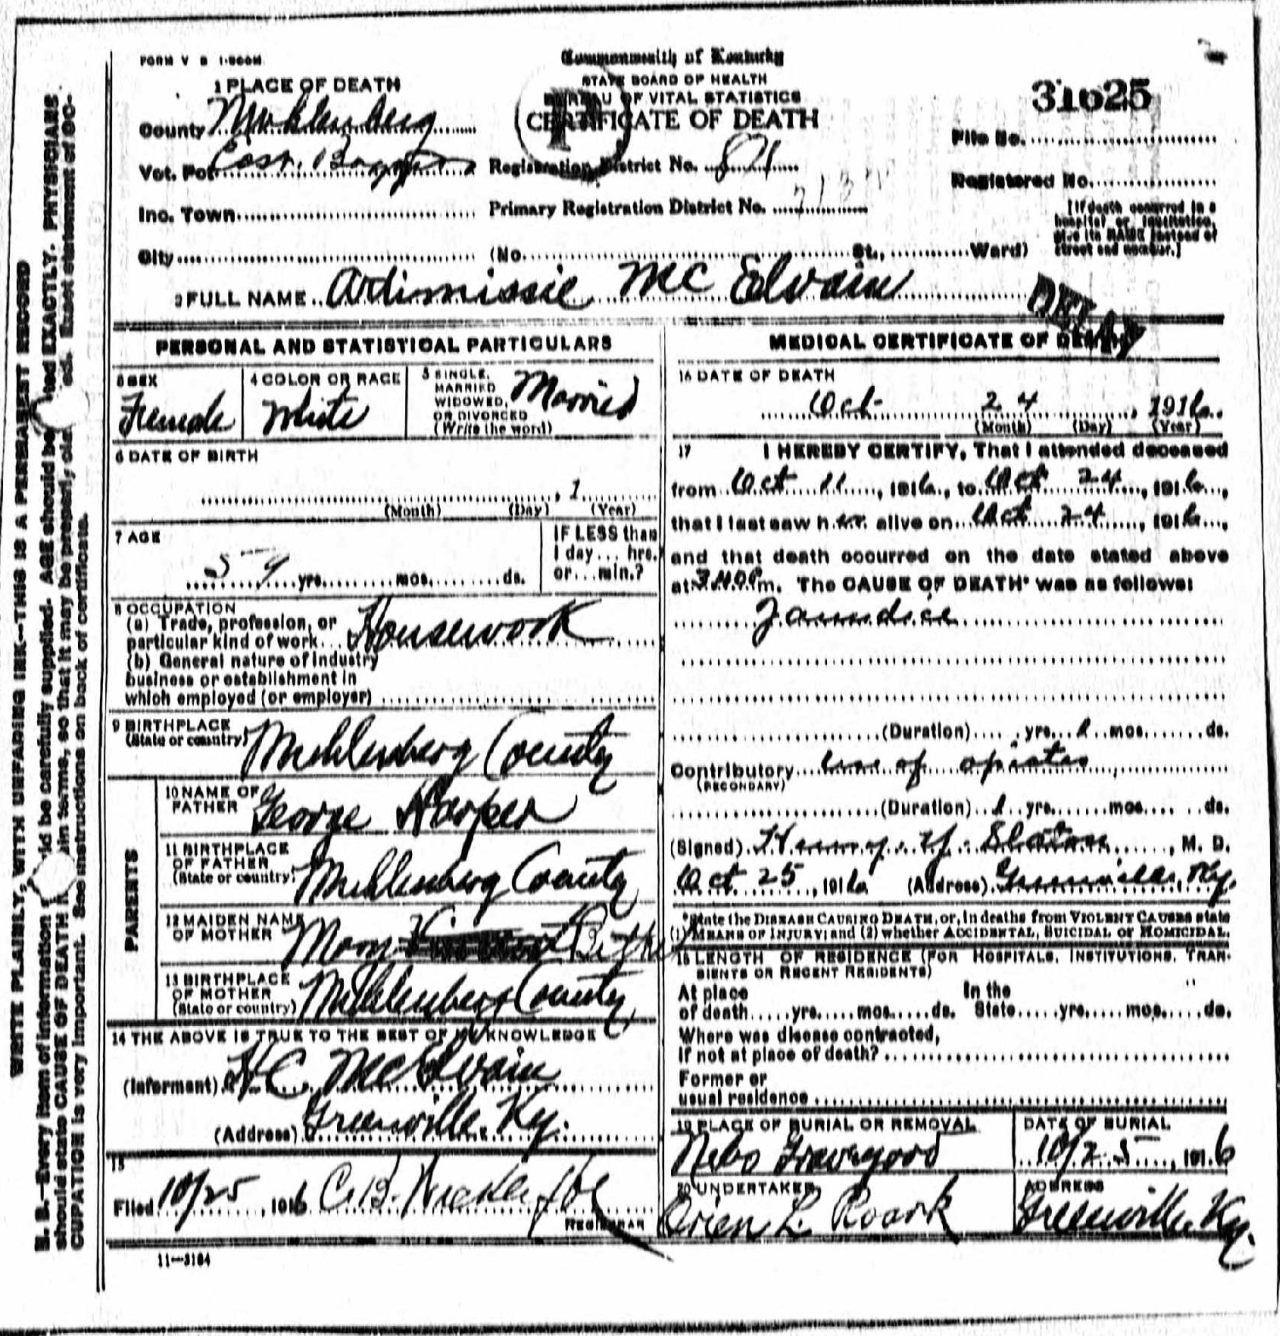 FORM V S 1-500M
Commonwealth of Kentucky
STATE BOARD OF HEALTH
BUREAU OF VITAL STATISTICS
CERTIFICATE OF DEATH
31625
File No.
Registered No.
[If death occurred in a hospital or institution, give its NAME instead of street and number.]
1 PLACE OF DEATH
County Muhlenberg
Vot. Pct. East
Registration District No. 871
Inc. Town
Primary Registration District No.
City (No. St., Ward)
2 FULL NAME Artimissie McElvain
PERSONAL AND STATISTICAL PARTICULARS
3 SEX Female
4 COLOR OR RACE White
5 SINGLE, MARRIED WIDOWED, OR DIVORCED (Write the word) Married
6 DATE OF BIRTH
, 1
(Month) (Day) (Year)
7 AGE
59 yrs. mos. ds.
IF LESS than 1 day ... hrs. or ... min.?
8 OCCUPATION
(a) Trade, profession, or particular kind of work Housework
(b) General nature of industry business or establishment in which employed (or employer)
9 BIRTHPLACE (State or country) Muhlenberg County
PARENTS
10 NAME OF FATHER George Harper
11 BIRTHPLACE OF FATHER (State or country) Muhlenberg County
12 MAIDEN NAME OF MOTHER
13 BIRTHPLACE OF MOTHER (State or country) Muhlenberg County
14 THE ABOVE IS TRUE TO THE BEST OF MY KNOWLEDGE
(Informant) H C McElvain
(Address) Greenville, Ky.
15
Filed 10/25, 1916 C. B.
REGISTRAR
11-3184
MEDICAL CERTIFICATE OF DEATH
16 DATE OF DEATH
Oct 24, 1916
(Month) (Day) (Year)
17 I HEREBY CERTIFY, That I attended deceased
from Oct 11, 1916, to Oct 24, 1916,
that I last saw her alive on Oct 24, 1916,
and that death occurred on the date stated above
at m. The CAUSE OF DEATH* was as follows:
Jaundice
(Duration) yrs. mos. ds.
Contributory use of opiates
(SECONDARY)
(Duration) yrs. mos. ds.
(Signed) Henry Y. Slaton, M. D.
Oct 25, 1916 (Address) Greenville, Ky.
*State the DISEASE CAUSING DEATH, or, in deaths from VIOLENT CAUSES state
(1) MEANS OF INJURY; and (2) whether ACCIDENTAL, SUICIDAL or HOMICIDAL.
18 LENGTH OF RESIDENCE (FOR HOSPITALS, INSTITUTIONS, TRANSIENTS OR RECENT RESIDENTS)
At place of death yrs. mos. ds. In the State yrs. mos. ds.
Where was disease contracted,
If not at place of death?
Former or
usual residence
19 PLACE OF BURIAL OR REMOVAL Nebo Graveyard
DATE OF BURIAL 10/25, 1916
20 UNDERTAKER Orien L. Roark
ADDRESS Greenville, Ky.
WRITE PLAINLY, WITH UNFADING INK—THIS IS A PERMANENT RECORD
N. B.—Every item of information should be carefully supplied. AGE should be stated EXACTLY. PHYSICIANS
should state CAUSE OF DEATH in plain terms, so that it may be properly classified. Exact statement of OC-
CUPATION is very important. See instructions on back of certificate.